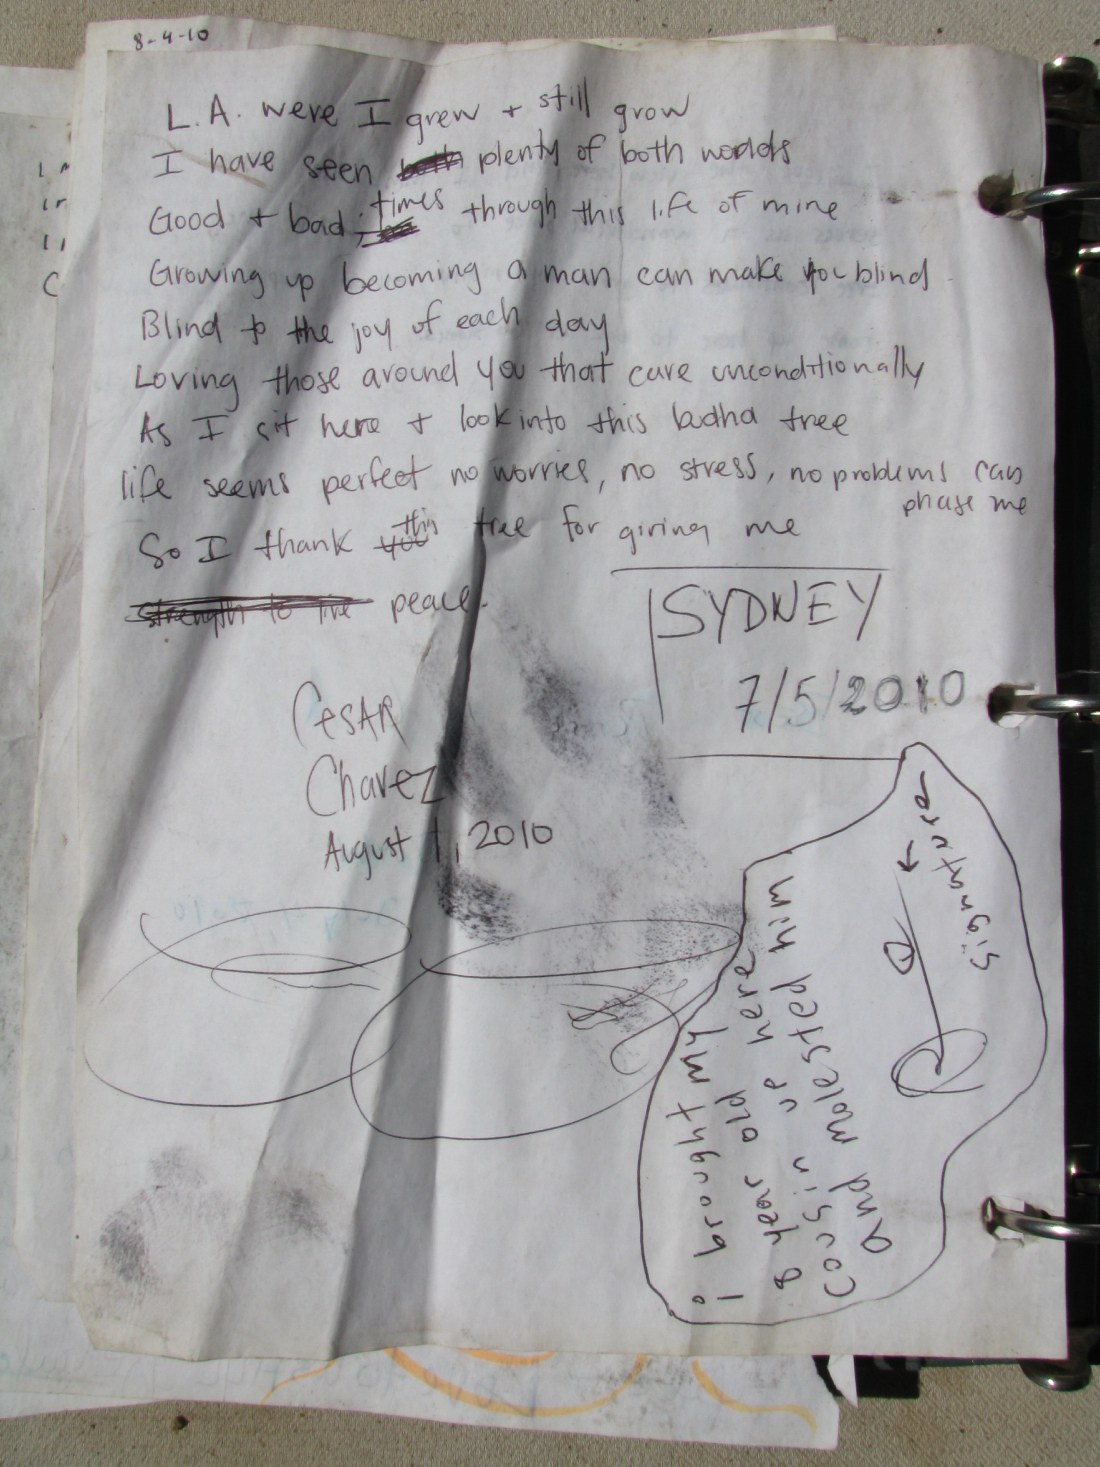 8-4-10
L.A. were I grew + still grow
I have seen both plenty of both worlds
Good + bad times through this life of mine
Growing up becoming a man can make you blind
Blind to the joy of each day
Loving those around you that care unconditionally
As I sit here + look into this budha tree
life seems perfect no worries, no stress, no problems can
phase me
So I thank you this tree for giving me
strength to live peace.
SYDNEY
7/5/2010
CesAR
Chavez
August 1, 2010
i brought my
8 year old
cousin up here
and molested him
signature